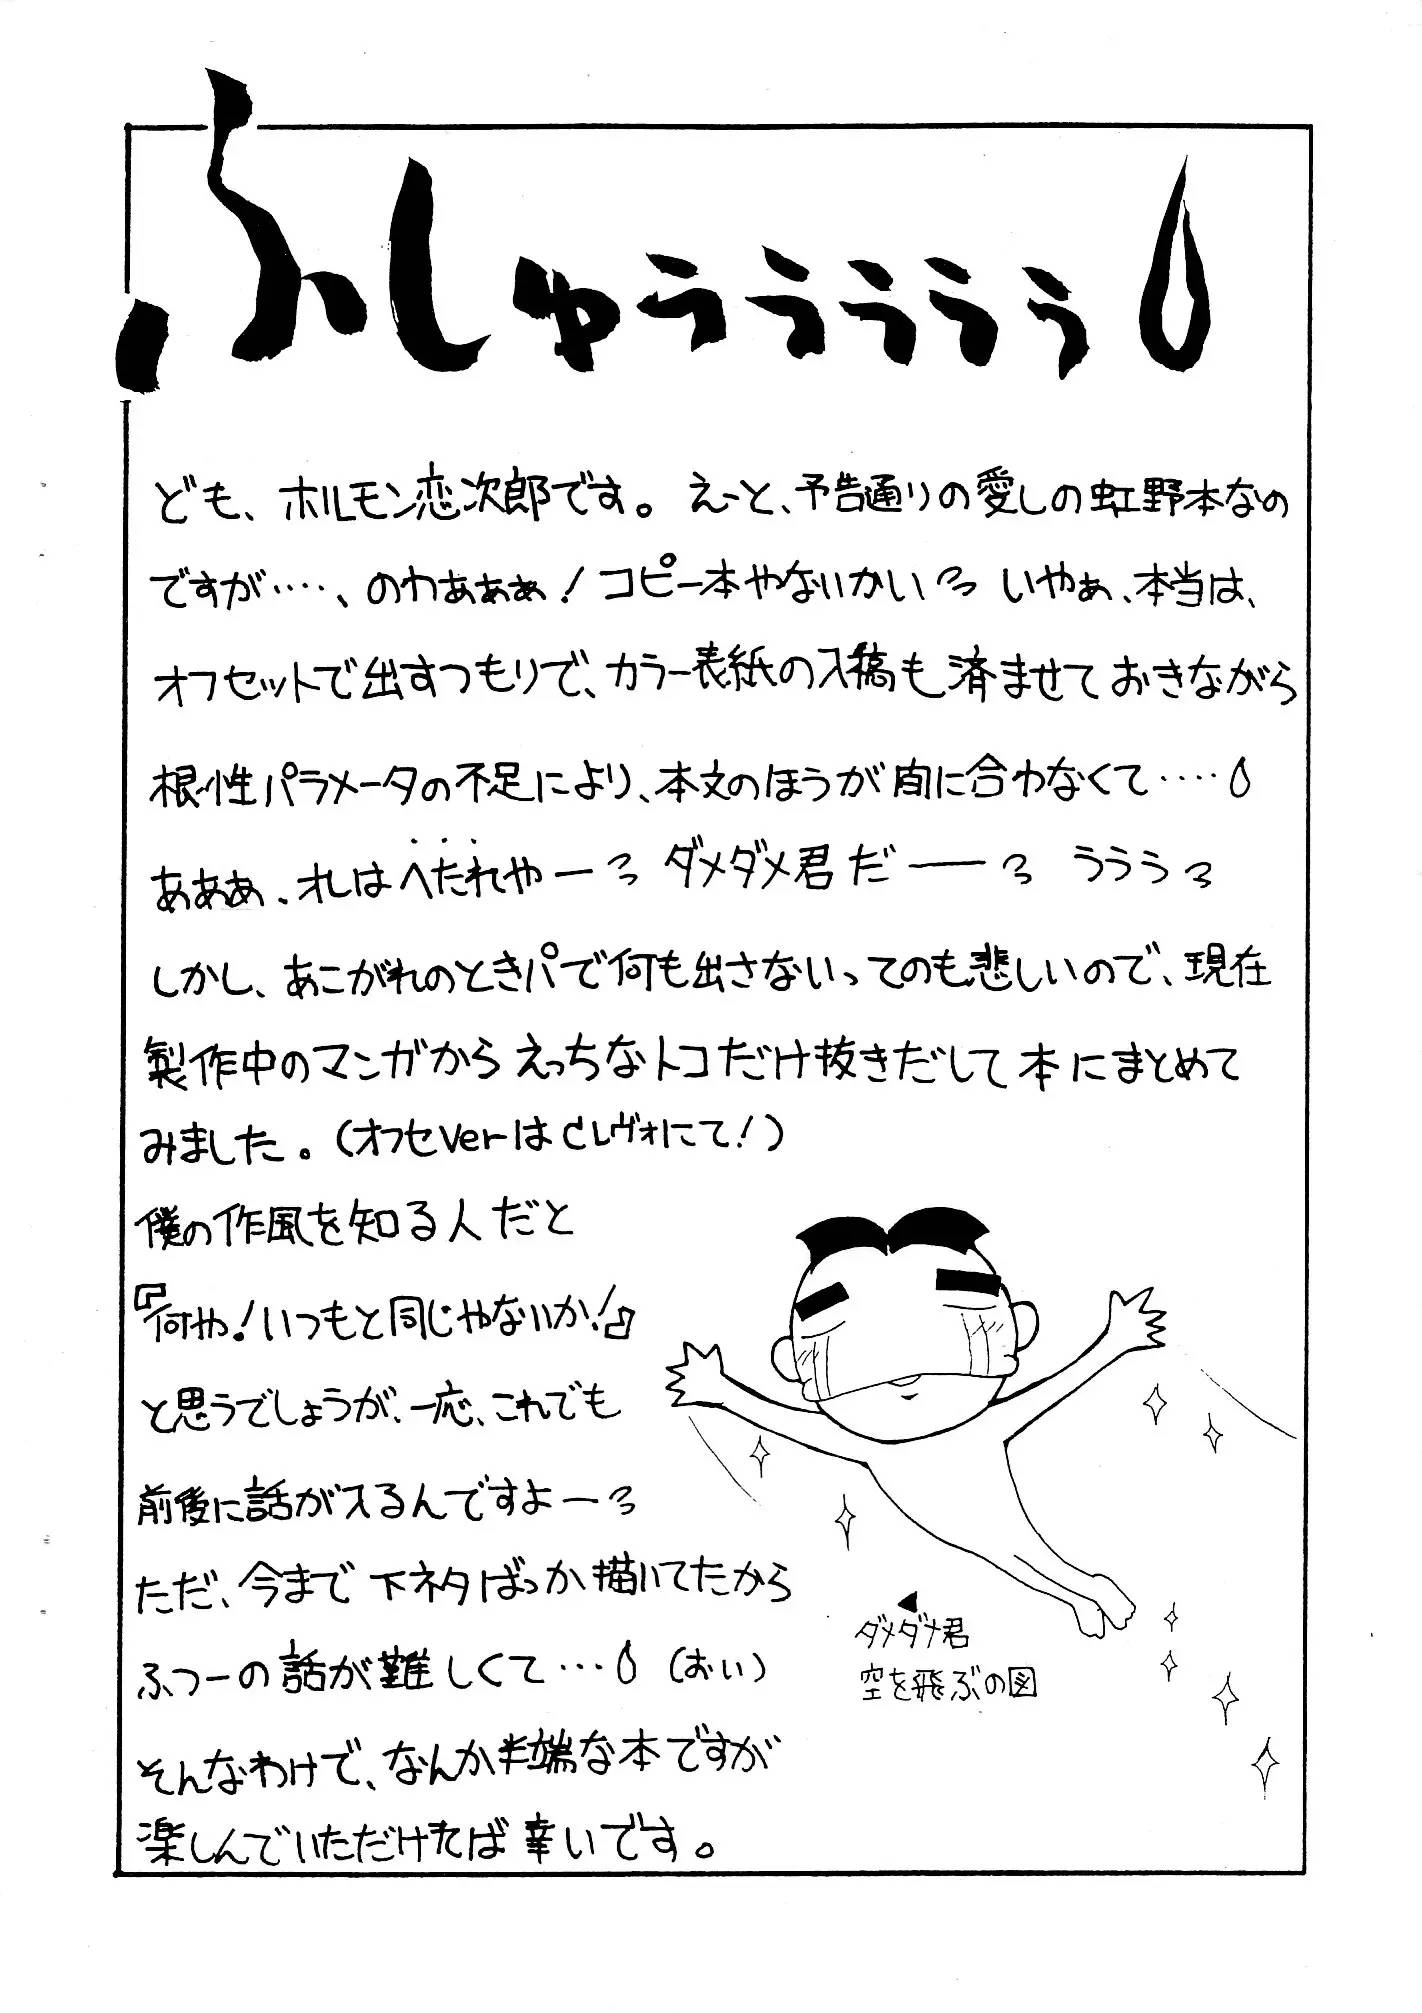 ふしゅぅぅぅぅぅ
ども、ホルモン恋次郎です。えーと、予告通りの愛しの虹野本なの
ですが‥‥、のわあぁぁ！コピー本やないかいっ いやぁ、本当は、
オフセットで出すつもりで、カラー表紙の入稿も済ませておきながら
根性パラメータの不足により、本文のほうが間に合わなくて‥‥
あぁぁ、オレはへたれやーっ ダメダメ君だーっ うぅぅっ
しかし、あこがれのときパで何も出さないってのも悲しいので、現在
製作中のマンガからえっちなトコだけ抜きだして本にまとめて
みました。(オフセverはCレヴォにて！)
僕の作風を知る人だと
『何や！いつもと同じやないか！』
と思うでしょうが、一応、これでも
前後に話が入るんですよーっ
ただ、今まで下ネタばっか描いてたから
ふつーの話が難しくて…(おい)
そんなわけで、なんか半端な本ですが
楽しんでいただければ幸いです。
◀
ダメダメ君
空を飛ぶの図